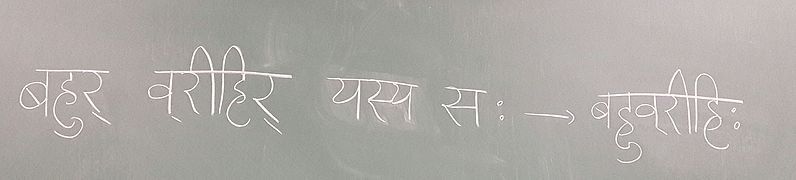 बहुर् व्‌रीहिर् यस्य सः → बहुव्‌रीहिः